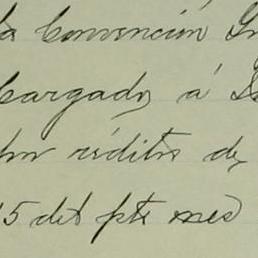 la Convención
Cargado, á
por réditos de
15 del pte mes